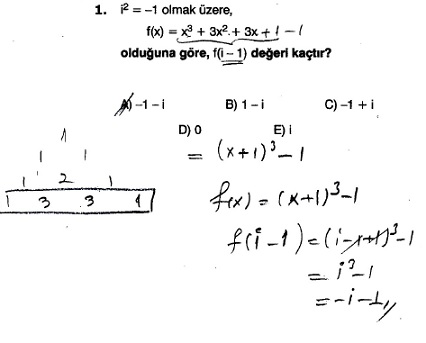 1. i² = −1 olmak üzere,
f(x) = x³ + 3x² + 3x + 1 − 1
olduğuna göre, f(i − 1) değeri kaçtır?
A) −1 − i B) 1 − i C) −1 + i
D) 0 E) i
= (x+1)³ − 1
1
1 1
1 2 1
1 3 3 1
f(x) = (x+1)³ − 1
f(i − 1) = (i − 1 + 1)³ − 1
= i³ − 1
= −i − 1,,